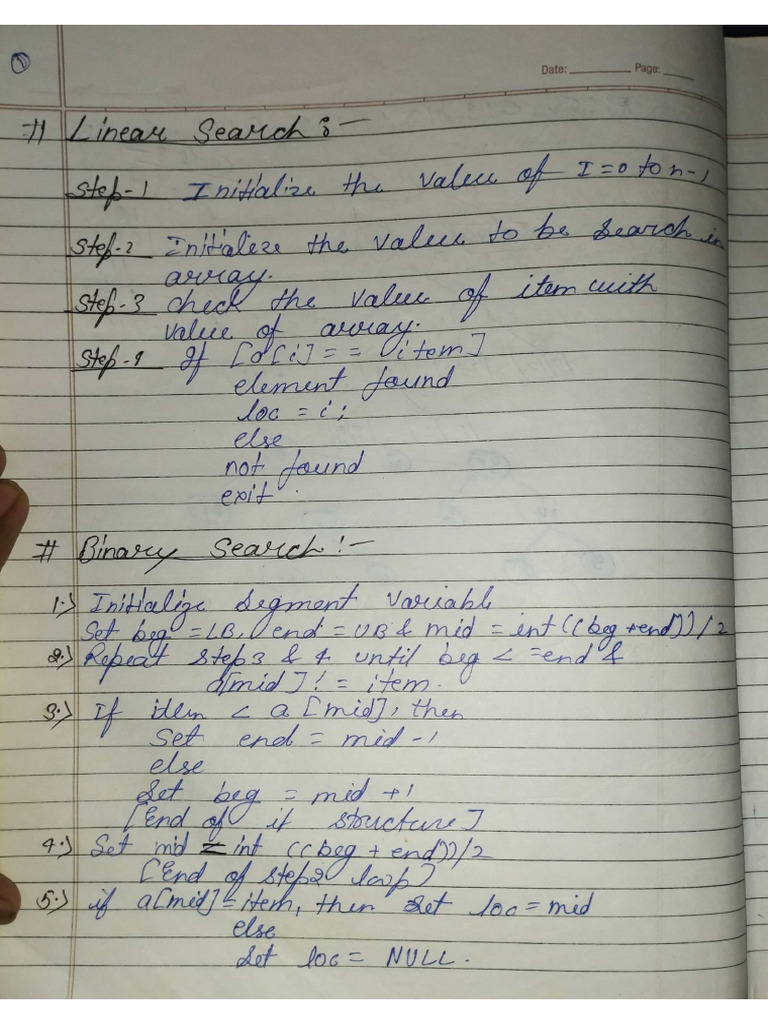 ①
Date: ______ Page: _____
# Linear Search :-
Step-1 Initialize the value of I=0 to n-1
Step-2 Initialeze the value to be search in
array.
Step-3 check the value of item with
value of array.
Step-4 If [a[i] == item]
element found
loc = i;
else
not found
exit.
# Binary Search :-
1.) Initialize segment variable
Set beg = LB, end = UB & mid = int((beg+end))/2
2.) Repeat step 3 & 4 until beg <=end &
a[mid] != item.
3.) If item < a[mid], then
Set end = mid -1
else
Set beg = mid +1
[End of if structure]
4.) Set mid = int ((beg + end))/2
[End of step2 loop]
5.) if a[mid]=item, then set loc = mid
else
Set loc = NULL.